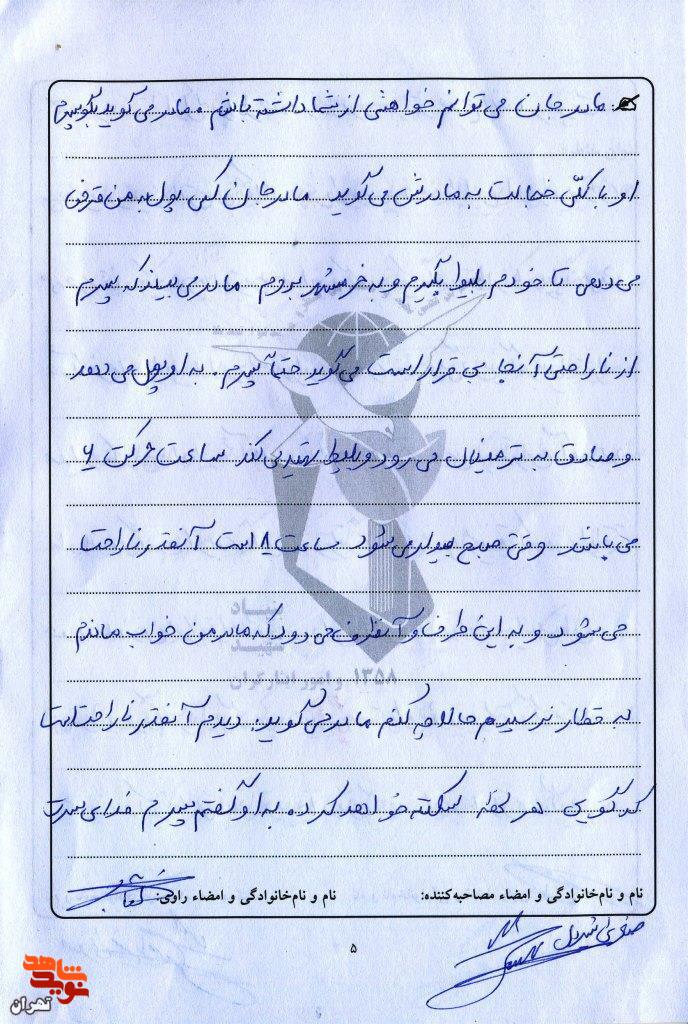 مادر جان می توانم خواهشی از شما داشته باشم. مادر می گوید بگو پسرم
او با کلی خجالت به مادرش می گوید مادر جان کمی پول به من قرض
می دهی تا خودم بلیط بگیرم و به خرمشهر بروم مادر می بیند که پسرم
از ناراحتی آنجا بی قرار است می گوید حتماً پسرم. به او پول می دهد
و صادق به ترمینال می رود و بلیط تهیه می کند ساعت حرکت ۶
می باشد. وقتی صبح بیدار می شود ساعت ۸ است آنقدر ناراحت
می شود و به این طرف و آنطرف می دود که مادر من خواب ماندم
به قطار نرسیدم حالا چه کنم مادر می گوید. دیدم آنقدر ناراحت است
که گویی هر لحظه سکته خواهد کرد. به او گفتم پسرم فدای سرت
نام و نام‌خانوادگی و امضاء مصاحبه‌کننده: نام و نام‌خانوادگی و امضاء راوی:
۵
بنیاد
شهید
و امور ایثارگران ۱۳۵۸
نوید شاهد
تهران